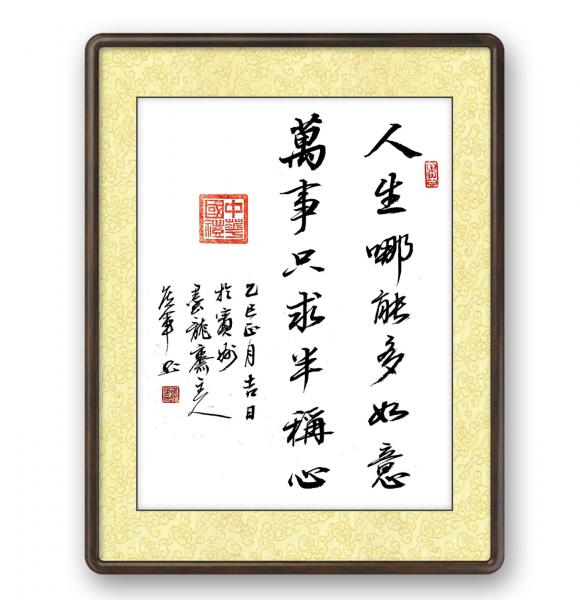 人生哪能多如意
萬事只求半稱心
乙巳正月吉日
於賓州
書龍齋主人
中華
國禮